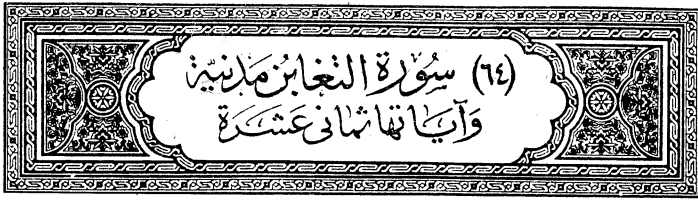 (٦٤) سُورَة التغَابُن مَدنيَّة
وَآيَاتهَا ثمَانى عَشرَة